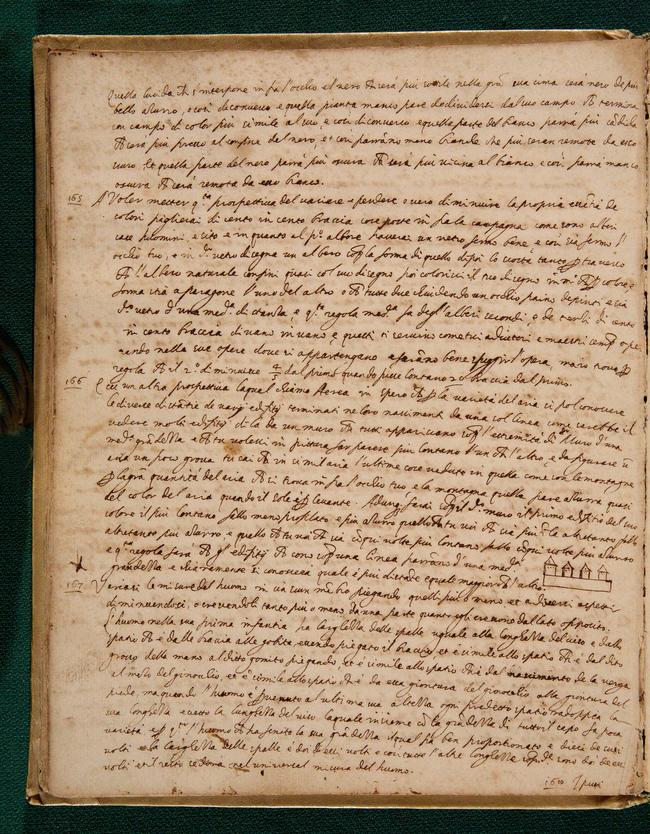 quella lucida ch s'interpone infra l'occhio et nero ch serà più sottile nella grā sua cima serà nero de piu
bello azurro, e così de converso e quella pianta manco pare dedividersi dal suo campo ch termina
con campo di color più simile al suo, e così di converso e quella parte del bianco parrà più cādida
ch serà più presso al confine del nero, et così parrāno meno bianche che più seran remote da esso
scuro. Et quella parte del nero parrà più oscura ch serà più vicina al bianco, e così parrà manco
oscura ch serà remota da esso bianco.
165 A Voler metter qsta prospettiva del variare e perdere overo diminuire la propria essētia de
colori piglierai di cento in cento braccia cose poste infra la campagna come sono alberi
case huomini, e siti e in quanto al po albore haverai un vetro fermo bene e così sia fermo l'
occhio tuo, e in do vetro disegna un albero sopra la forma di quello di poi lo scosta tanto per traverso
ch l'albero naturale confini quasi col tuo disegno poi colorisci il tuo disegno in mo ch per colore e
forma stia a paragone l'uno del altro o ch tutti due chiudendo un occhio paino depinti e sia
do vetro d'una meda distanza, e qsta regola meda fa degl'alberi secondi, e de terzi di cento
in cento braccia di mano in mano e questi ti servino come tui adiutori e maestri sempre ope
rando nelle tue opere dove si appartengano e farāno bene fuggir l'opera, ma io trovo per
regola ch il 2o diminuisce 4/5 dal primo quando fusse lontano 20 braccia dal primo.
166 E ci un altra prospettiva la qual chiamo Aerea in pero ch per la varietà del aria si pol conoscere
le diverse distātie de varij edifitij terminati ne loro nascimenti da una sol linea come sarebbe il
vedere molti edifitij di là da un muro ch tutti apparischino sopra l'estremità di do Muro d'una
meda grādezza e ch tu volessi in pittura far parere più lontano l'un ch l'altro, e da figurare si
aria un poco grossa tu sai ch in simil aria l'ultime cose vedute in quella come son le montagne
per la grā quantità del aria ch si trova infra l'occhio tuo e la montagna quella pare azurra quasi
del color del aria quando il sole è per levante. Adunq farai sopra il do muro il primo edifitio del suo
colore il più lontano fallo meno profilato e più azurro quello ch tu voi ch sia più in la altretanto fallo
altretanto più azurro, e quello ch tu voi ch sia cinque volte più lontano fallo cinque volte più azurro
e qsta regola farà ch gl'edifitij ch sono sopra una linea parrāno d'una meda
grandezza e chiaramente si conoscerà quale è più distāte e quale maggiore de l'altro.
167 Variasi le misure del huomo in ciascun mēbro piegando quelli più o meno et a diversi aspetti
diminuendoli, o crescendoli tanto più o meno da una parte quanto gli cresciono dal lato opposito.
L'huomo nella sua prima infantia ha la larghezza delle spalle uguale alla longhezza del viso et dallo
spatio ch è dalle braccia alle gobita essendo piegato il braccio et è simile allo spatio ch è dal dito
grosso della mano al dito gomito piegando, et è simile allo spatio ch è dal nascimento de la verga
al mezo del ginocchio, et è simile allo spatio ch è da essa giontura del ginocchio alla giontura del
piede, ma quando l'huomo è pervenuto al ultima sua altezza ogni predetto spatio radoppia la
sua longhezza eccetto la longhezza del viso laquale insieme cō la grādezza di tutto il capo fa poca
varietà, e per qsto l'huomo ch ha finito la sua grādezza il qual sia ben proportionato è dieci de suoi
volti e la larghezza delle spalle è doi d'essi volti e così tutte l'altre longhezze sopr de sono doi de essi
volti et il resto se dirà nel universal misura del huomo.
I putti